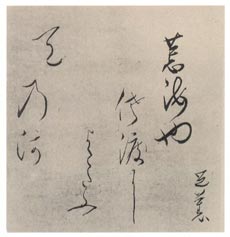 荒海也
佐渡に
よこたふ
天乃河
芭蕉